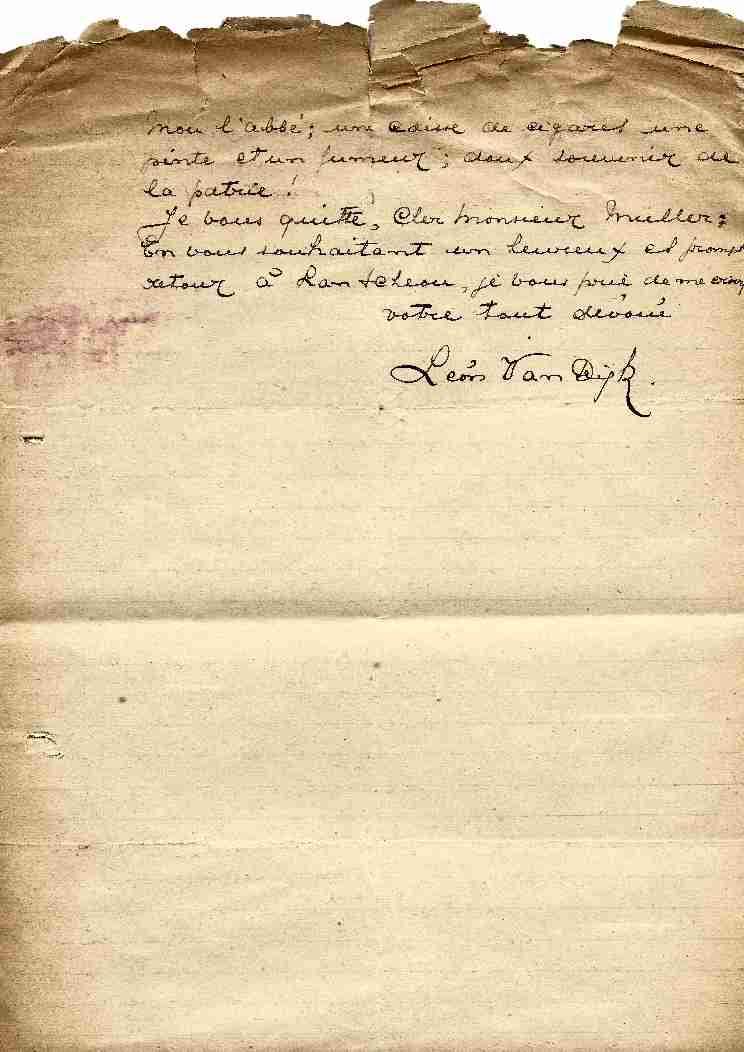 Mou l'abbé; une caisse de cigares une
pinte et un fumeur; doux souvenir de
la patrie!
Je vous quitte, Cher Monsieur Muller;
En vous souhaitant un heureux et prompt
retour à Lan tcheou, je vous prie de me
votre tout dévoué
Léon Van Dijk.